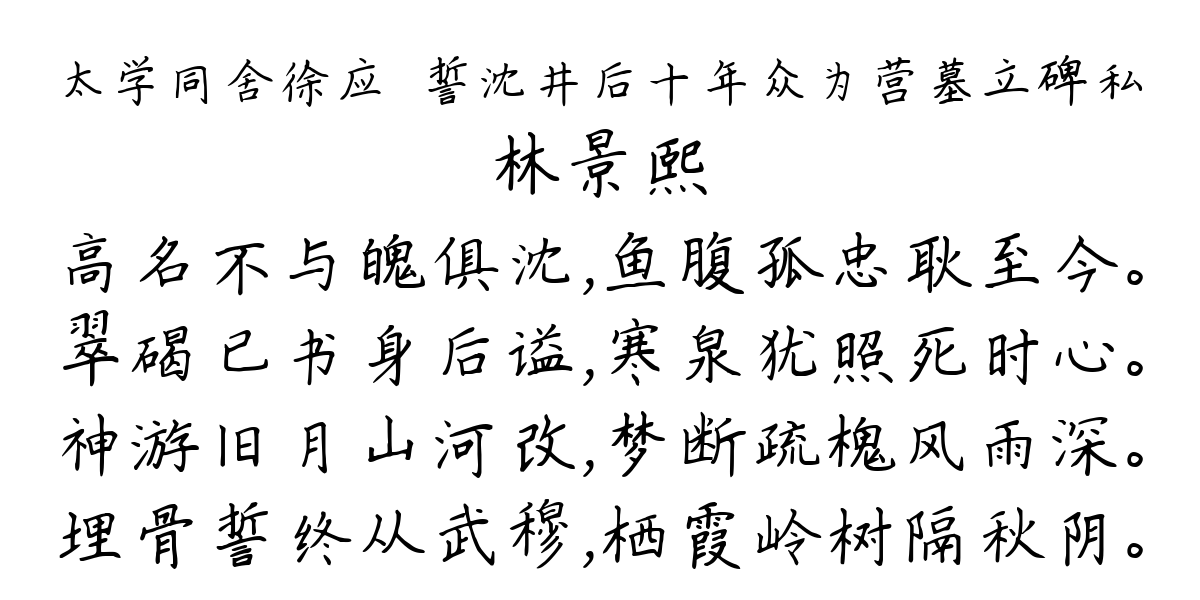 太学同舍徐应 誓沈井后十年众为营墓立碑私
林景熙
高名不与魄俱沈,鱼腹孤忠耿至今。
翠碣已书身后谥,寒泉犹照死时心。
神游旧月山河改,梦断疏槐风雨深。
埋骨誓终从武穆,栖霞岭树隔秋阴。